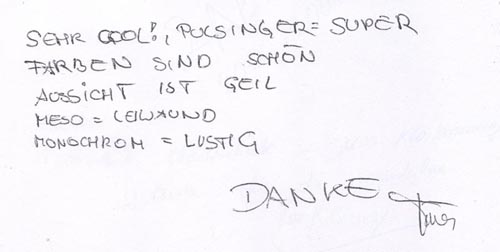 SEHR COOL!, PULSINGER = SUPER
FARBEN SIND SCHÖN
AUSSICHT IST GEIL
MESO = LEIWAUND
MONOCHROM = LUSTIG
DANKE